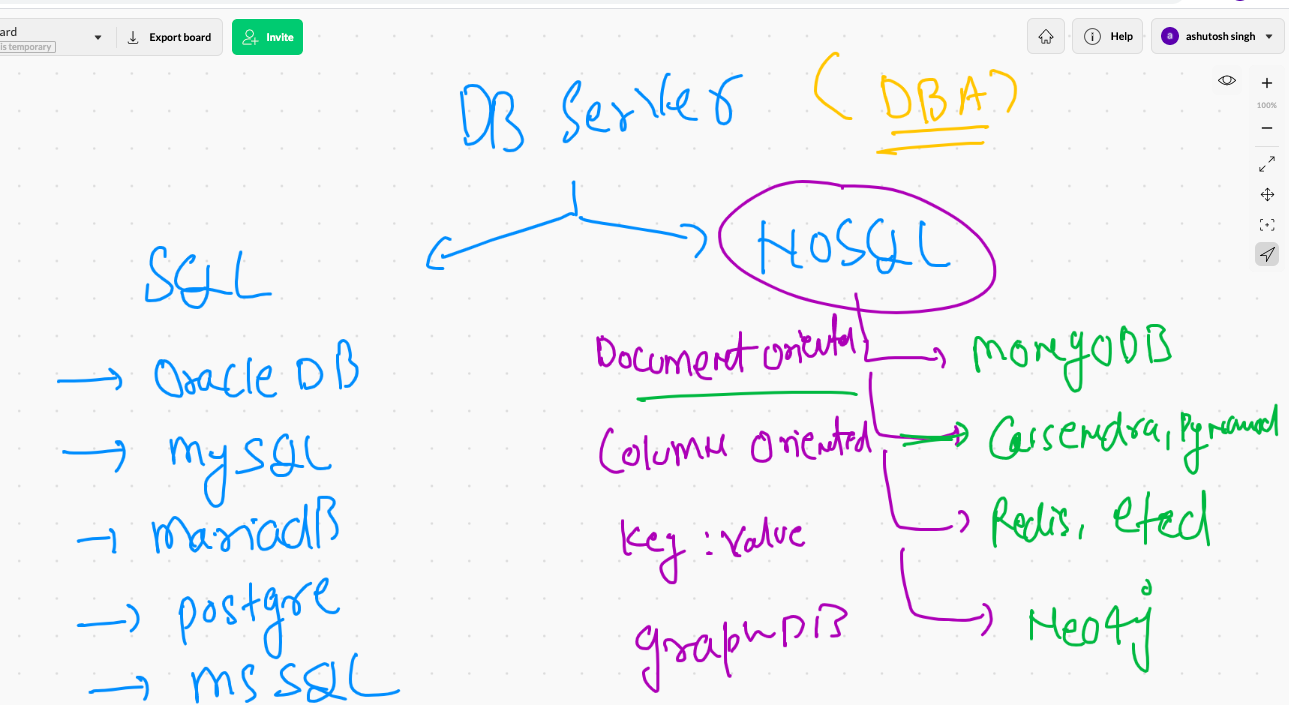 ard
is temporary
Export board
Invite
Help
a ashutosh singh
100%
DB Server (DBA)
SQL
NOSQL
Oracle DB
MySQL
MariadB
postgre
MS SQL
Document oriented
MongoDB
Column oriented
Cassendra,
Key : Value
Redis, etcd
graph DB
Neo4j